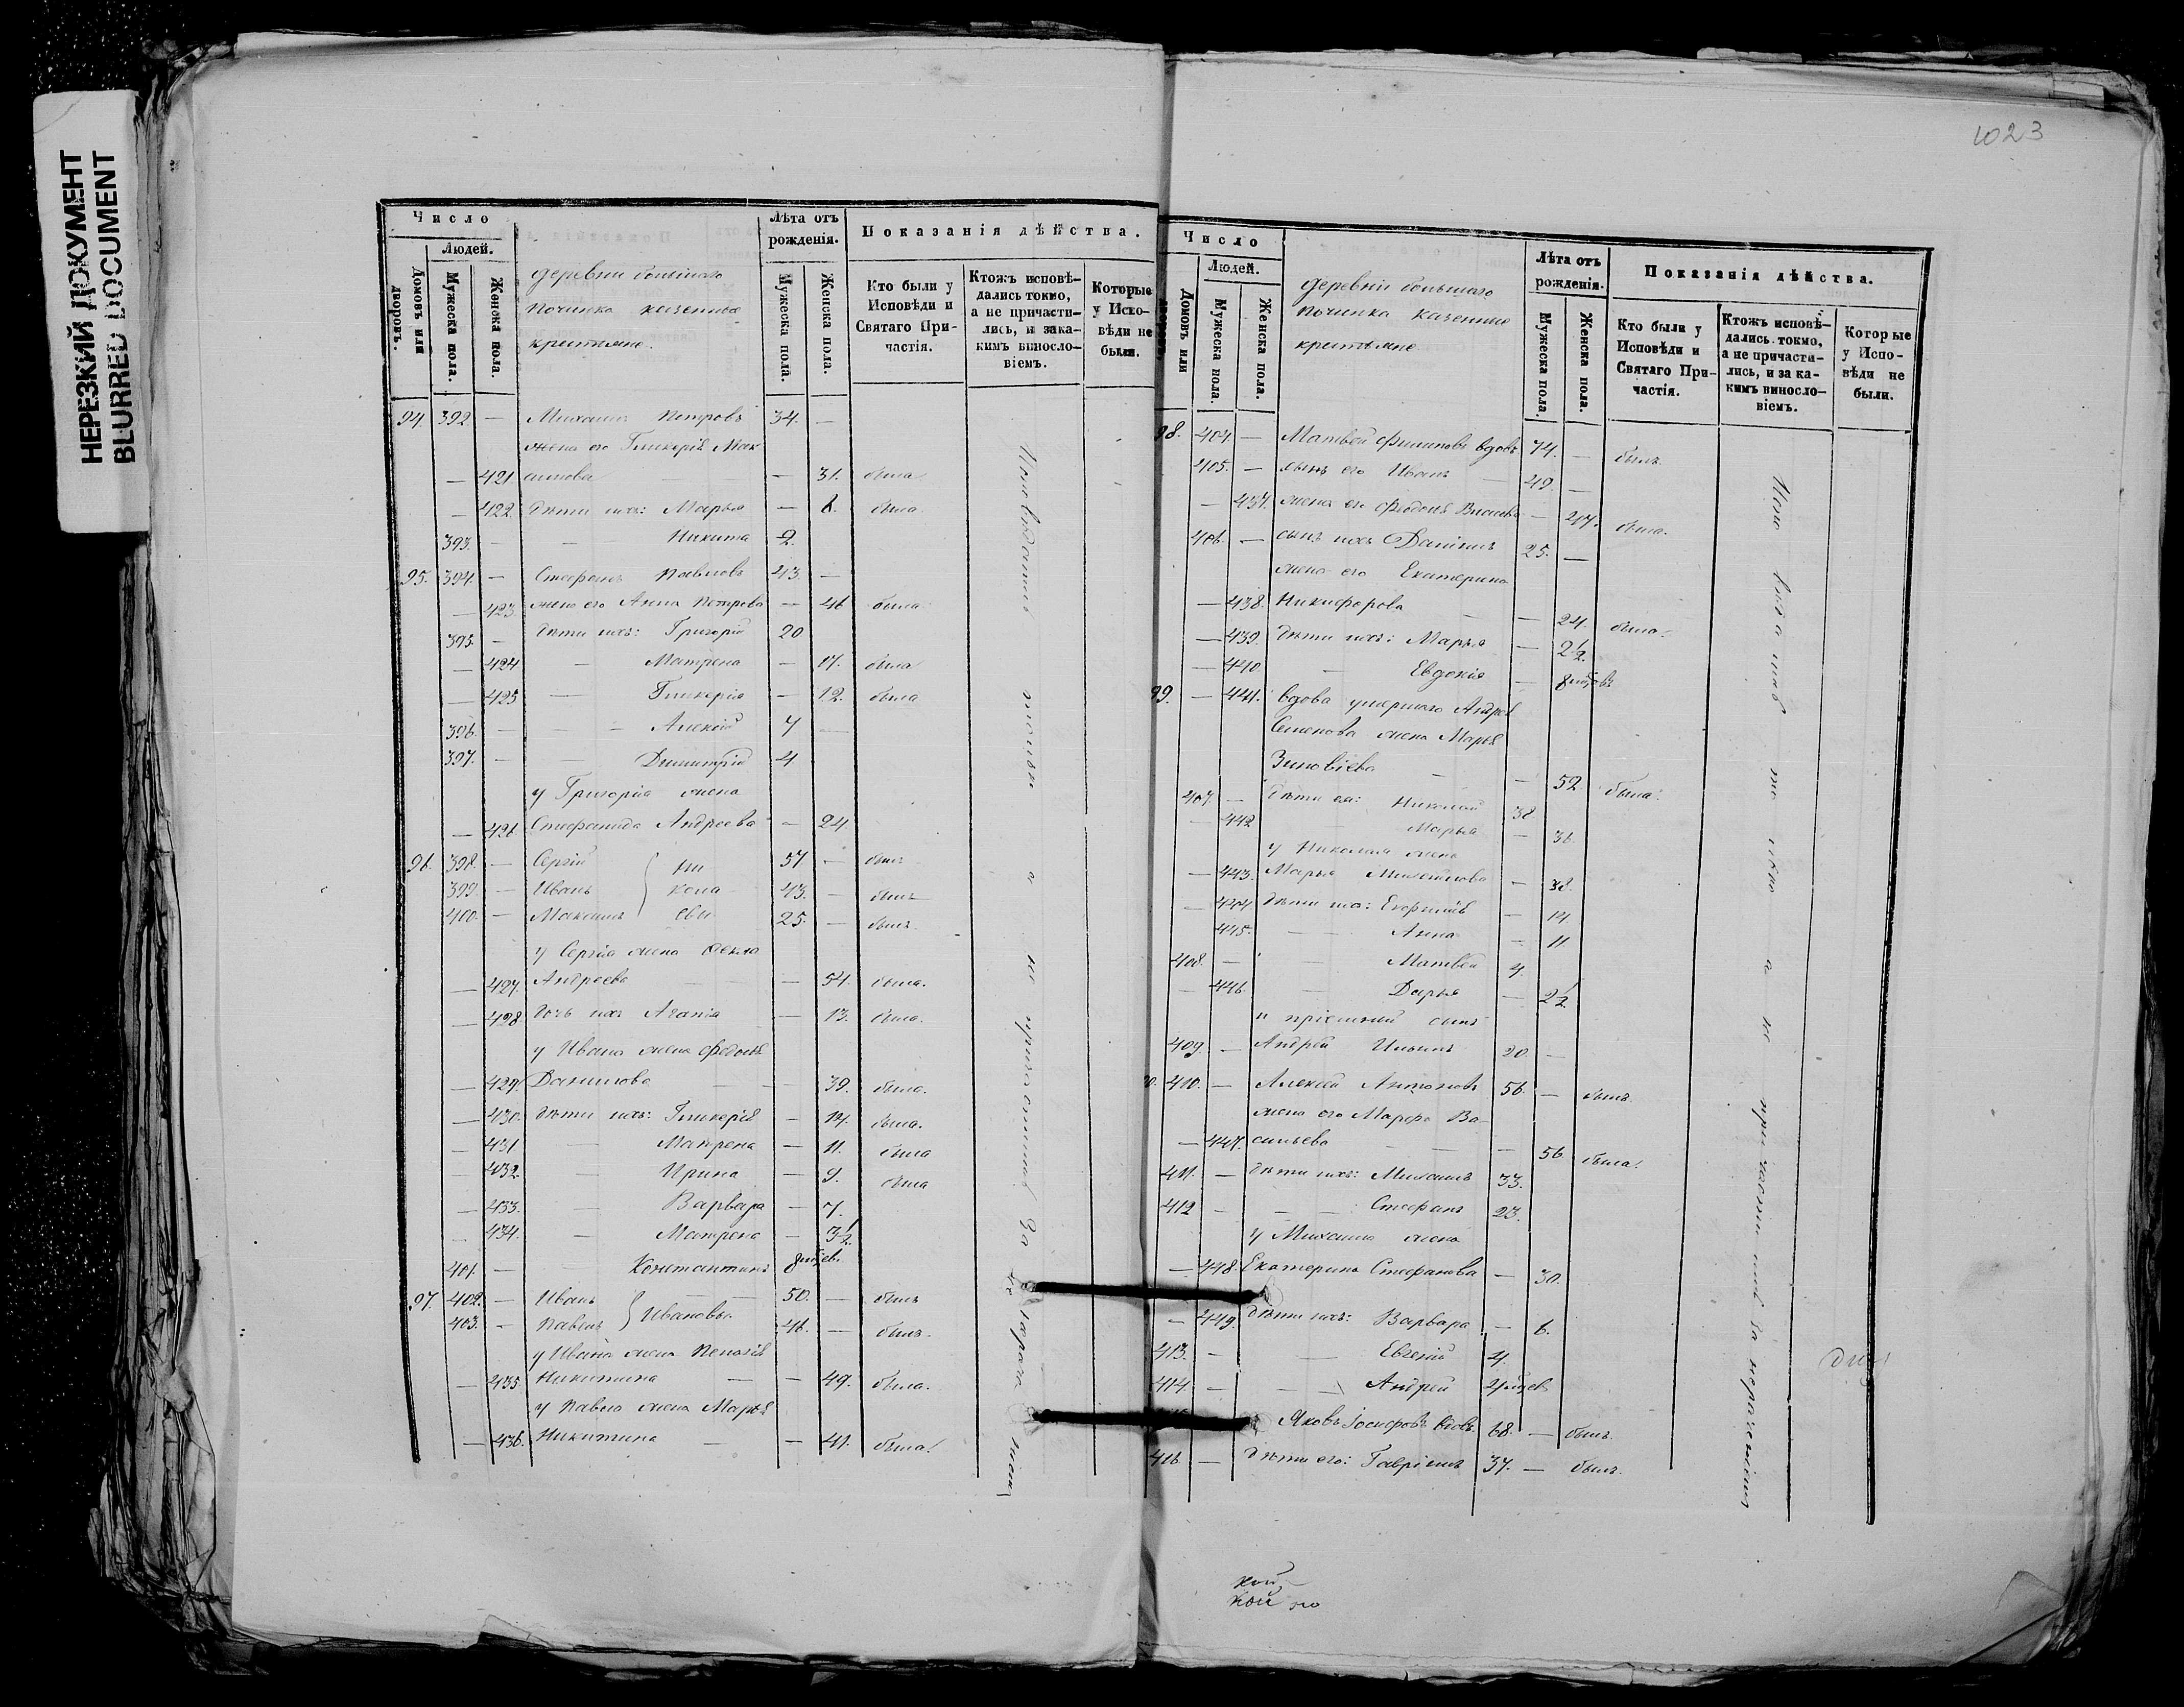 НЕРЕЗКИЙ ДОКУМЕНТ
BLURRED DOCUMENT
Число
Людей.
Домовъ или дворовъ.
Мужеска пола.
Женска пола.
деревни большаго
починка казенные
крестьяне.
Лѣта отъ рожденія.
Мужеска пола.
Женска пола.
Показанія дѣйства.
Кто были у Исповѣди и Святаго Причастія.
Ктожъ исповѣдались токмо, а не причастились, и закакимъ винословіемъ.
Которые у Исповѣди не были.
94. 392 — Михаилъ Петровъ 34. —
жена его Гликерія Мак
— 421 симова — 31. была
— 422 дѣти ихъ: Марья — 8. была.
393. — — Никита 2.
95. 394. — Стефанъ Павловъ 43. —
— 423. жена его Анна Петрова — 46 была
395. — дѣти ихъ: Григорій 20
— 424 — Матрена — 17. была
— 425 — Гликерія — 12. была
396. — — Алексій 7 —
397. — — Димитрій 4
у Григорія жена
— 426 Стефанида Андреева — 24.
96. 398. — Сергій 57 — былъ
399. — Иванъ 43. — былъ
400. — Максимъ 25. — былъ.
Ни
кона
евы
у Сергія жена Фекла
— 427. Андреева — 54. была.
— 428 дочь ихъ Агапія — 13. была.
у Ивана жена Федосья
— 429. Данилова — 39. была.
— 430. дѣти ихъ: Гликерія — 14. была.
— 431 — Матрена — 11. была
— 432. — Ирина — 9. была
— 433. — Варвара — 7.
— 434. — Матрена — 3½
401. — — Константинъ 8 мѣсев.
97. 402. — Иванъ 50. — былъ
403. — Павелъ 46. — былъ.
Ивановы
у Ивана жена Пелагія
— 435. Никитина — 49. была.
у Павла жена Марья
— 436. Никитина — 41. была.
Исповѣдались токмо а не причастились За
1023
Число
Людей.
Домовъ или
Мужеска пола.
Женска пола.
деревни большаго
починка казенные
крестьяне
Лѣта отъ рожденія.
Мужеска пола.
Женска пола.
Показанія дѣйства.
Кто были у Исповѣди и Святаго Причастія.
Ктожъ исповѣдались токмо, а не причастились, и за какимъ винословіемъ.
Которые у Исповѣди не были.
98. 404. — Матвей Филиповъ вдовъ 74. — былъ.
405. — сынъ его Иванъ 49. —
— 437. жена его Феодосья — 47. была.
406. — сынъ ихъ Даніилъ 25. —
жена его Екатерина
— 438. Никифорова — 24. была.
— 439. дѣти ихъ: Марья — 2½.
— 440 — Евдокія — 8 мѣсев
99. — 441. вдова умершаго Андрея
Семенова жена Марья
Зиновіева — 52 была.
407. — дѣти ея: Николай 38
— 442 Марья — 36.
у Николая жена
— 443. Марья Михайлова — 38.
— 444 дѣти ихъ: — 14
445. — Анна — 11
408. — — Матвей 4.
— 446 — Дарья — 2½
и пріемный сынъ
409. — Андрей Ильинъ 20. —
410. — Алексій Антоновъ 56. — былъ.
жена его Марфа Ва
— 447. сильева — 56. была.
411. — дѣти ихъ: Михаилъ 33.
412 — — Стефанъ 23.
у Михаила жена
— 448. Екатерина Стефанова — 30.
— 449. дѣти ихъ: Варвара — 6.
413. — — Евгеній 4.
414. — — Андрей 4 мѣсев
Яковъ Іосифовъ вдовъ. 68. — былъ.
416 — дѣти его: Гавріилъ 37. — былъ.
Исповѣдались токмо а не причастились за нераченіемъ
кой
кой